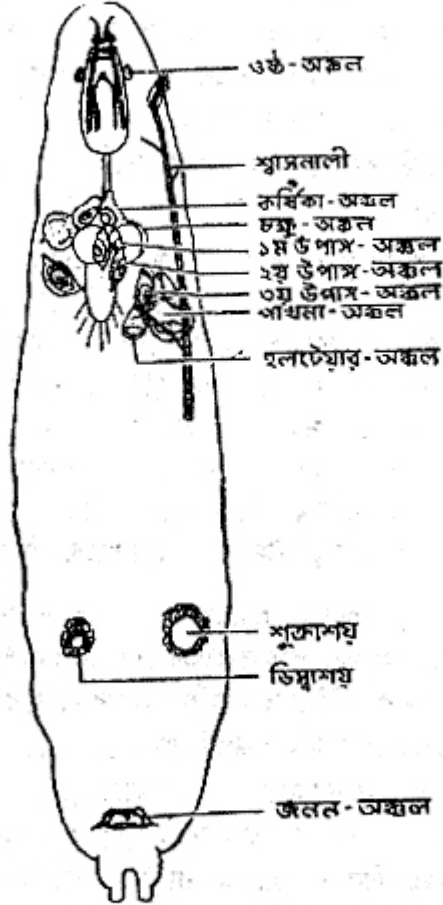 ওষ্ঠ - অঙ্কল
শ্বাসনালী
কর্ষিকা - অঙ্কল
চক্ষু - অঙ্কল
১ম উপাঙ্গ - অঙ্কল
২য় উপাঙ্গ - অঙ্কল
৩য় উপাঙ্গ - অঙ্কল
পাখনা - অঙ্কল
হলটেয়ার - অঙ্কল
শুক্রাশয়
ডিম্বাশয়
জনন - অঙ্কল